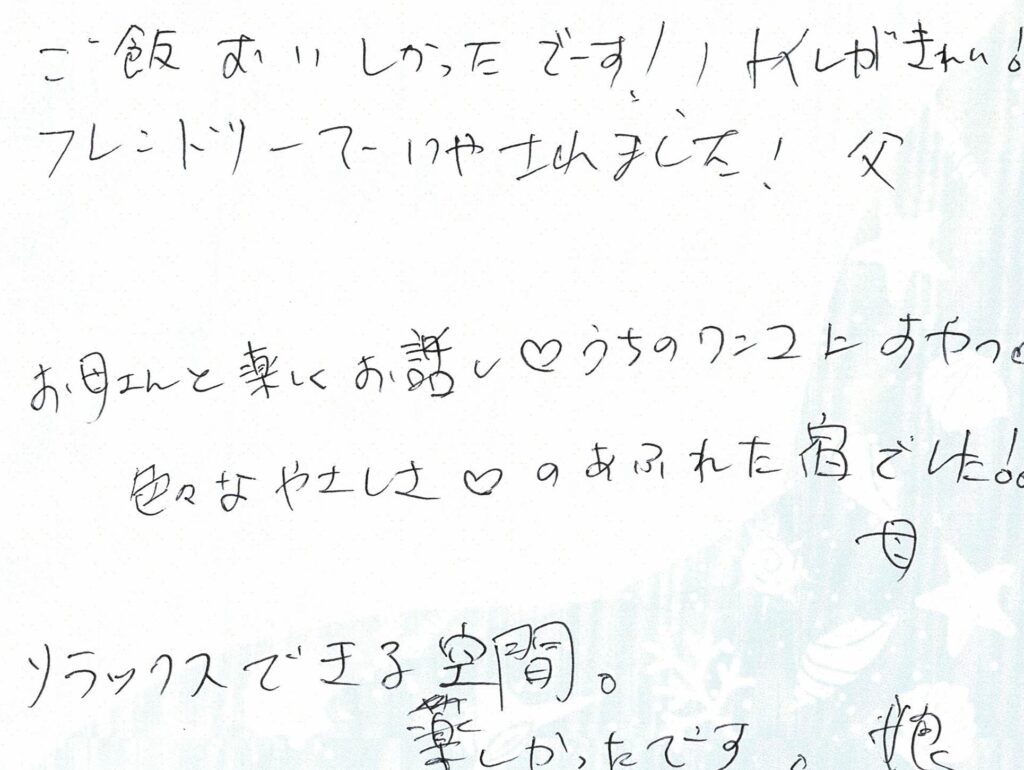 ご飯おいしかったでーす!! トイレがきれい!
フレンドリーでーいやされました! 父
お母さんと楽しくお話し♡うちのワンコにおやつ
色々なやさしさ♡のあふれた宿でした!!
母
リラックスできる空間。
楽しかったです。